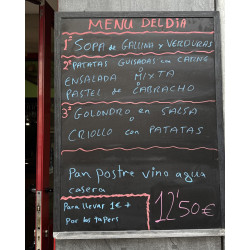 MENU DEL DIA
1º SOPA de GALLINA y VERDURAS
2º PATATAS GUISADAS con CARNE
o
ENSALADA MIXTA
o
PASTEL de CABRACHO
3º GOLONDRO en SALSA
o
CRIOLLO con PATATAS
Pan postre vino agua
casera
Para llevar 1€ +
Por los tapers
12'50€